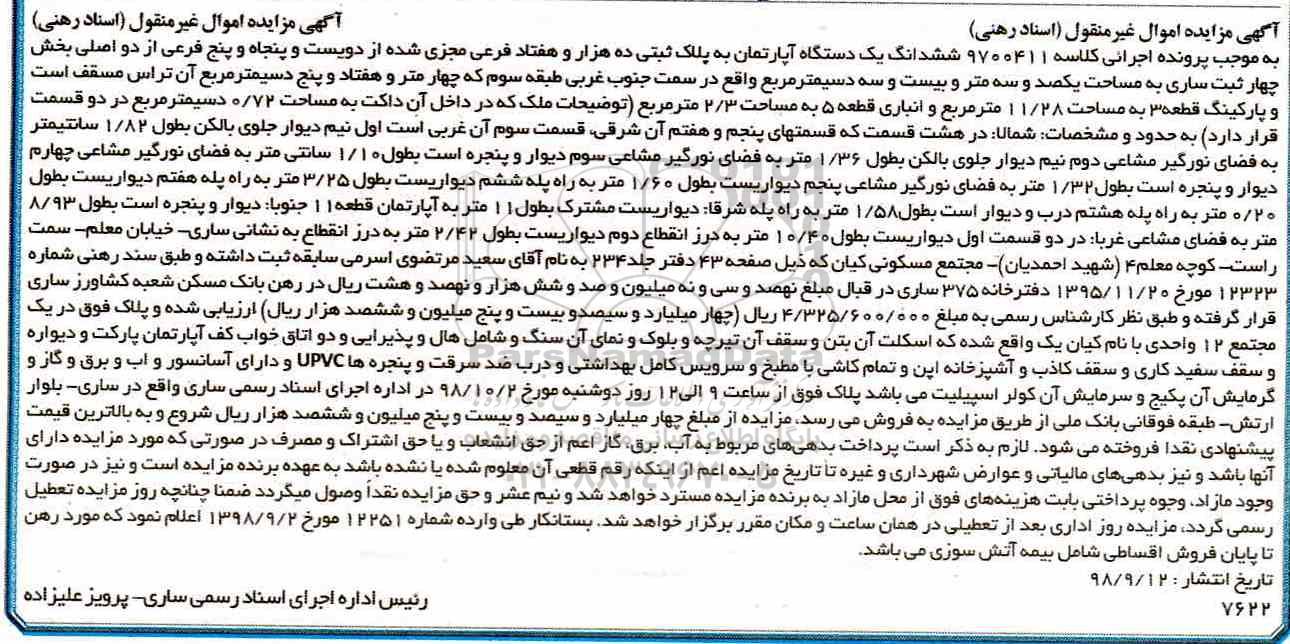 آگهی مزایده اموال غیرمنقول (اسناد رهنی) آگهی مزایده اموال غیرمنقول (اسناد رهنی)
به موجب پرونده اجرائی کلاسه ۹۷۰۰۴۱۱ ششدانگ یک دستگاه آپارتمان به پلاک ثبتی ده هزار و هفتاد فرعی مجزی شده از دویست و پنجاه و پنج فرعی از دو اصلی بخش
چهار ثبت ساری به مساحت یکصد و سه متر و بیست و سه دسیمترمربع واقع در سمت جنوب غربی طبقه سوم که چهار متر و هفتاد و پنج دسیمترمربع آن تراس مسقف است
و پارکینگ قطعه۳ به مساحت ۱۱/۲۸ مترمربع و انباری قطعه ۵ به مساحت ۲/۳ مترمربع (توضیحات ملک که در داخل آن داکت به مساحت ۰/۷۲ دسیمترمربع در دو قسمت
قرار دارد) به حدود و مشخصات: شمالا: در هشت قسمت که قسمتهای پنجم و هفتم آن شرقی، قسمت سوم آن غربی است اول نیم دیوار جلوی بالکن بطول ۱/۸۲ سانتیمتر
به فضای نورگیر مشاعی دوم نیم دیوار جلوی بالکن بطول ۱/۳۶ متر به فضای نورگیر مشاعی سوم دیوار و پنجره است بطول۱/۱۰ سانتی متر به فضای نورگیر مشاعی چهارم
دیوار و پنجره است بطول۱/۳۲ متر به فضای نورگیر مشاعی پنجم دیواریست بطول ۱/۶۰ متر به راه پله ششم دیواریست بطول ۳/۲۵ متر به راه پله هفتم دیواریست بطول
۰/۲۰ متر به راه پله هشتم درب و دیوار است بطول۱/۵۸ متر به راه پله شرقا: دیواریست مشترک بطول۱۱ متر به آپارتمان قطعه۱۱ جنوبا: دیوار و پنجره است بطول ۸/۹۳
متر به فضای مشاعی غربا: در دو قسمت اول دیواریست بطول ۱۰/۴۰ متر به درز انقطاع دوم دیواریست بطول ۲/۴۲ متر به درز انقطاع به نشانی ساری– خیابان معلم– سمت
راست– کوچه معلم۴ (شهید احمدیان)– مجتمع مسکونی کیان که ذیل صفحه ۴۳ دفتر جلد۲۳۴ به نام آقای سعید مرتضوی اسرمی سابقه ثبت داشته و طبق سند رهنی شماره
۱۲۳۲۳ مورخ ۱۳۹۵/۱۱/۲۰ دفترخانه ۳۷۵ ساری در قبال مبلغ نهصد و سی و نه میلیون و صد و شش هزار و نهصد و هشت ریال در رهن بانک مسکن شعبه کشاورز ساری
قرار گرفته و طبق نظر کارشناس رسمی به مبلغ ۴/۳۲۵/۶۰۰/۰۰۰ ریال (چهار میلیارد و سیصدو بیست و پنج میلیون و ششصد هزار ریال) ارزیابی شده و پلاک فوق در یک
مجتمع ۱۲ واحدی با نام کیان یک واقع شده که اسکلت آن بتن و سقف آن تیرچه و بلوک و نمای آن سنگ و شامل هال و پذیرایی و دو اتاق خواب کف آپارتمان پارکت و دیواره
و سقف سفید کاری و سقف کاذب و آشپزخانه اپن و تمام کاشی با مطبخ و سرویس کامل بهداشتی و درب ضد سرقت و پنجره ها UPVC و دارای آسانسور و اب و برق و گاز و
گرمایش آن پکیج و سرمایش آن کولر اسپیلیت می باشد پلاک فوق از ساعت ۹ الی۱۲ روز دوشنبه مورخ ۹۸/۱۰/۲ در اداره اجرای اسناد رسمی ساری واقع در ساری– بلوار
ارتش– طبقه فوقانی بانک ملی از طریق مزایده به فروش می رسد، مزایده از مبلغ چهار میلیارد و سیصد و بیست و پنج میلیون و ششصد هزار ریال شروع و به بالاترین قیمت
پیشنهادی نقدا فروخته می شود. لازم به ذکر است پرداخت بدهی‌های مربوط به آب، برق، گاز اعم از حق انشعاب و یا حق اشتراک و مصرف در صورتی که مورد مزایده دارای
آنها باشد و نیز بدهی‌های مالیاتی و عوارض شهرداری و غیره تا تاریخ مزایده اعم از اینکه رقم قطعی آن معلوم شده یا نشده باشد به عهده برنده مزایده است و نیز در صورت
وجود مازاد، وجوه پرداختی بابت هزینه‌های فوق از محل مازاد به برنده مزایده مسترد خواهد شد و نیم عشر و حق مزایده نقداً وصول میگردد ضمنا چنانچه روز مزایده تعطیل
رسمی گردد، مزایده روز اداری بعد از تعطیلی در همان ساعت و مکان مقرر برگزار خواهد شد. بستانکار طی وارده شماره ۱۲۲۵۱ مورخ ۱۳۹۸/۹/۲ اعلام نمود که مورد رهن
تا پایان فروش اقساطی شامل بیمه آتش سوزی می باشد.
تاریخ انتشار : ۹۸/۹/۱۲
رئیس اداره اجرای اسناد رسمی ساری– پرویز علیزاده
۷۶۲۲
ParsNamadData
۰۲۱-۸۸۳۴۹۶۷۰-۵